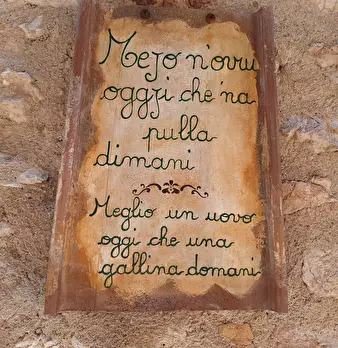 Mejo n'ovu
oggji che 'na
pulla
dimani
Meglio un uovo
oggi che una
gallina domani